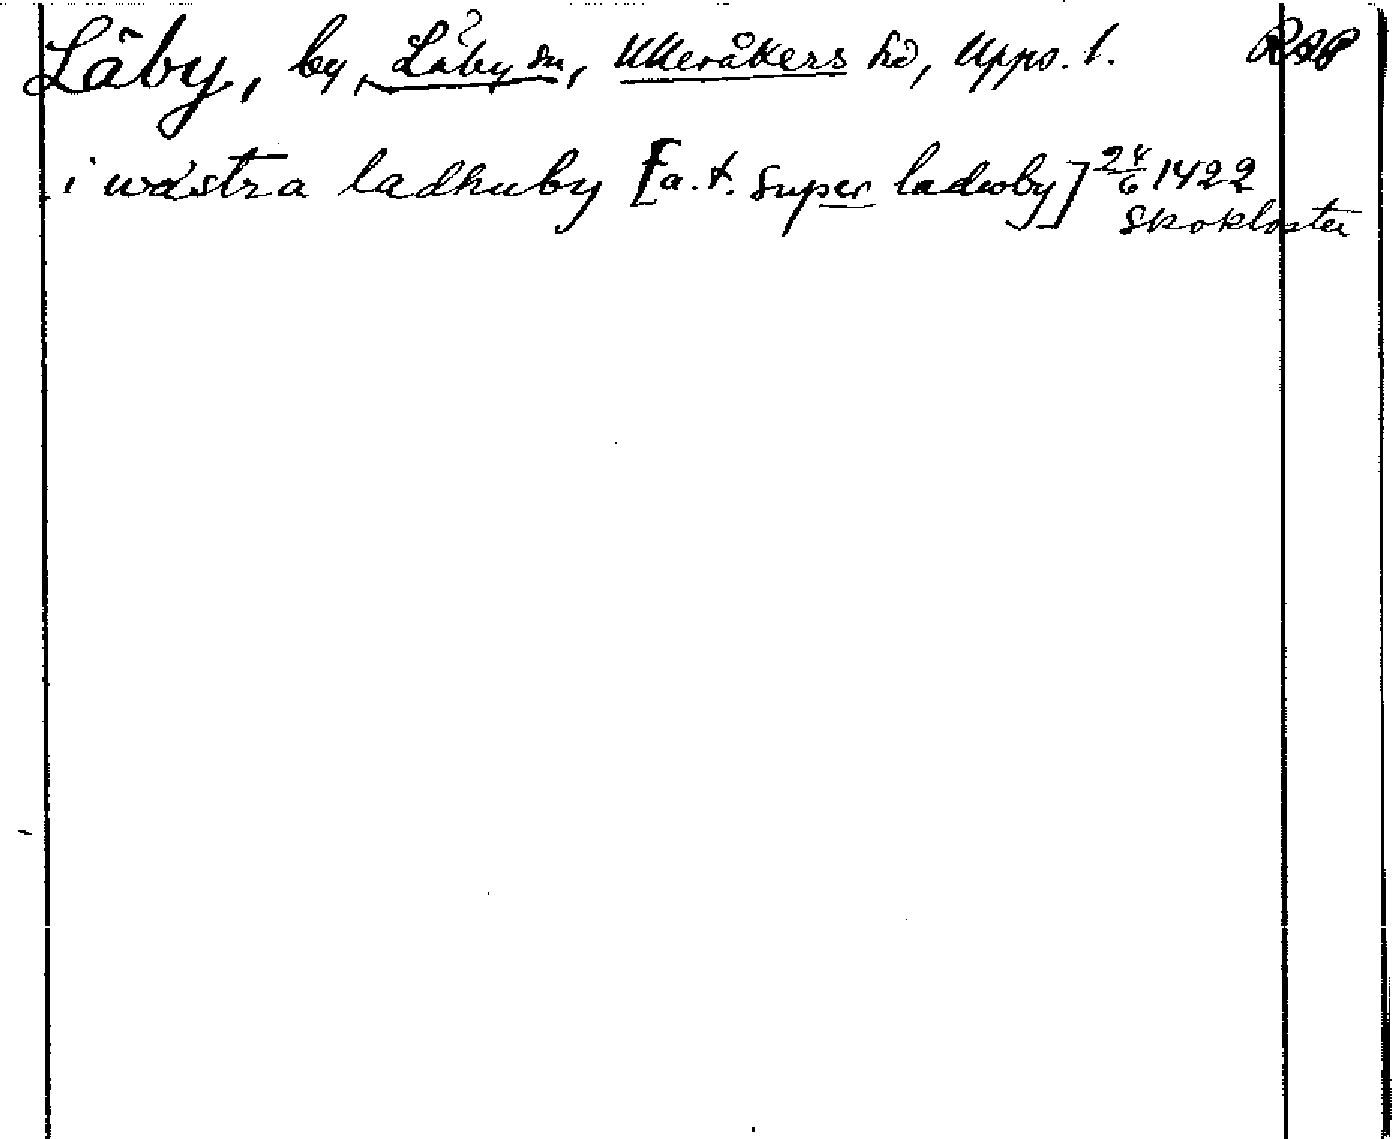 Läby, by, Läby sn, Ulleråkers hd, Upps. l. RAP
i wæstra ladhuby [a. t. super ladwby] 24/6 1422
Skokloster